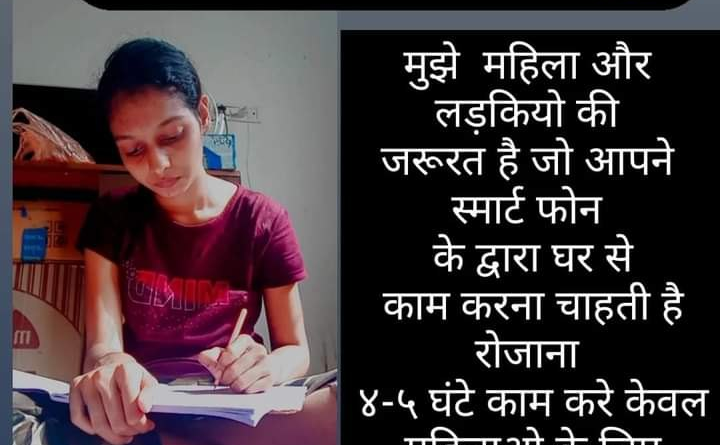 मुझे महिला और
लड़कियो की
जरूरत है जो आपने
स्मार्ट फोन
के द्वारा घर से
काम करना चाहती है
रोजाना
४-५ घंटे काम करे केवल
MIND
m